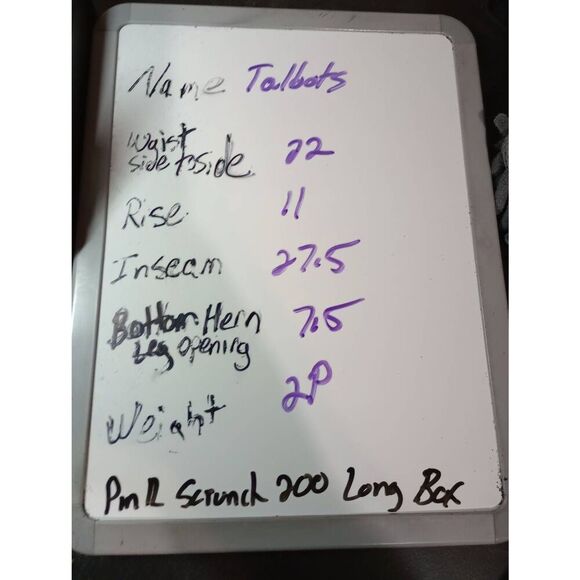 Name Talbots
Waist
side to side 22
Rise 11
Inseam 27.5
Bottom Hem 7.5
Leg Opening
Weight 2P
Scrunch 200 Long Box